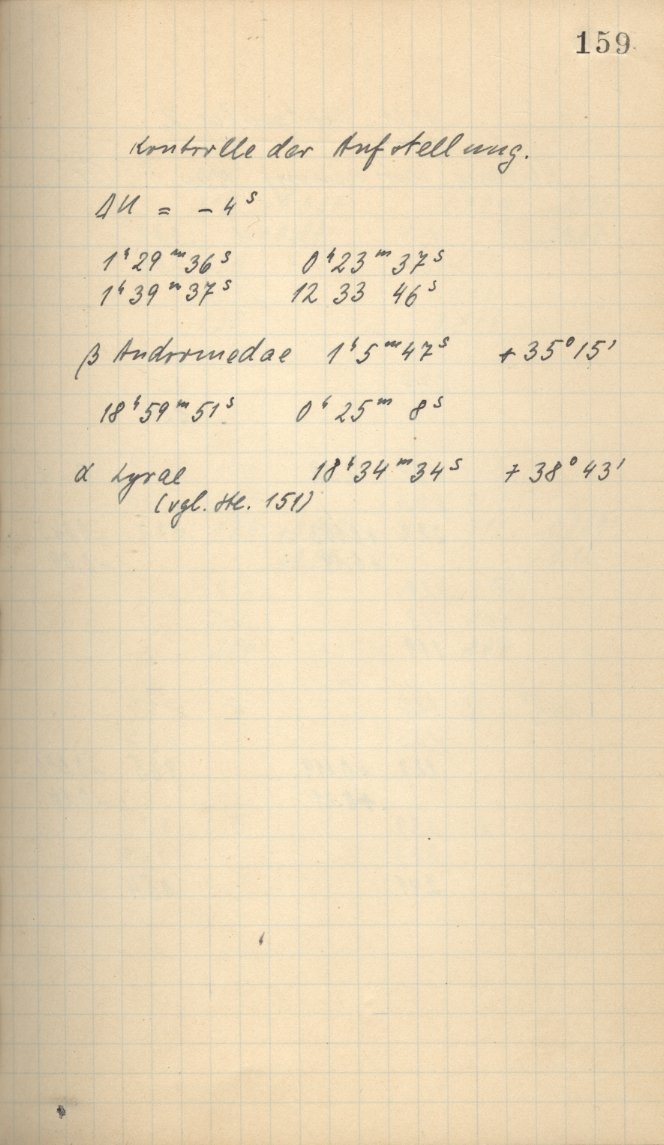 159
Kontrolle der Aufstellung.
ΔU = - 4ˢ
1ʰ29ᵐ36ˢ 0ʰ23ᵐ37ˢ
1ʰ39ᵐ37ˢ 12 33 46ˢ
β Andromedae 1ʰ5ᵐ47ˢ + 35°15'
18ʰ59ᵐ51ˢ 0ʰ25ᵐ 8ˢ
α Lyrae 18ʰ34ᵐ34ˢ + 38°43'
(vgl. Ste. 151)